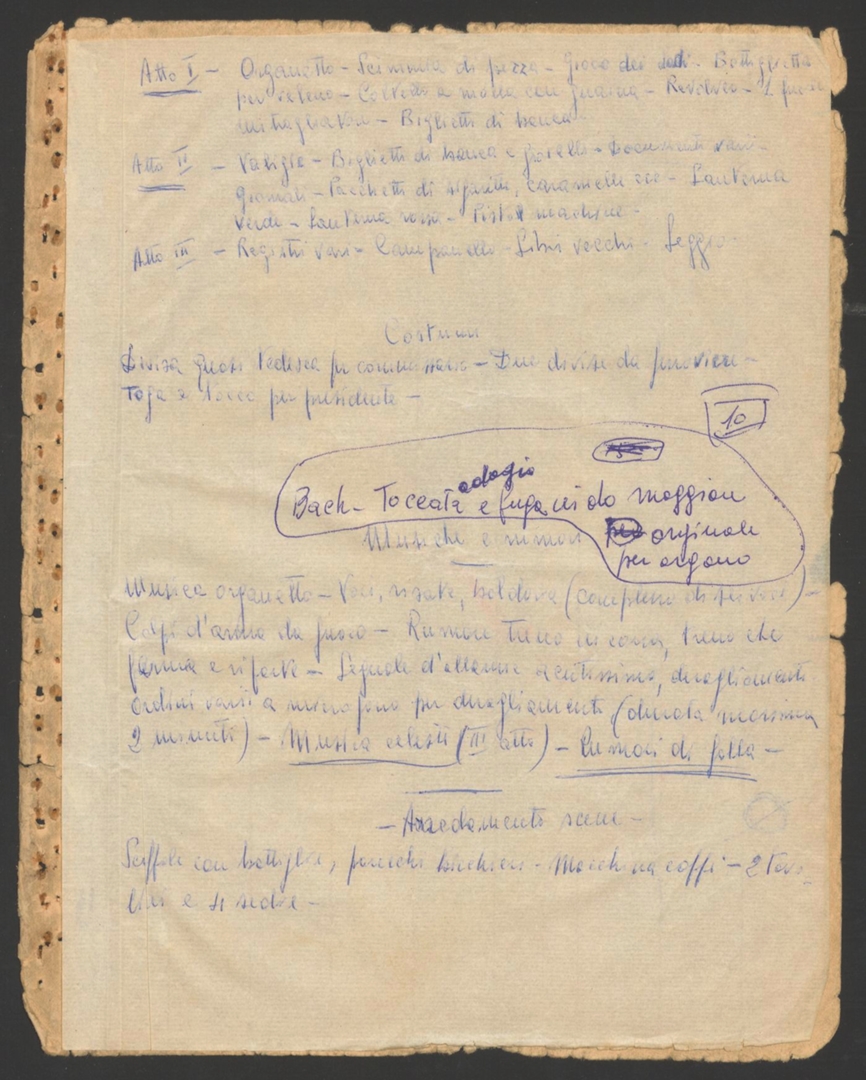 Atto I - Organetto - Scimmia di pezza - Gioco dei dadi - Bottiglietta
per veleno - Coltello a molla con guaina - Revolver - 1 fucile
mitragliatore - Biglietti di banca -
Atto II - Valigie - Biglietti di banca e gioielli - Documenti vari -
Giornali - Pacchetti di sigarette, caramelle ecc - Lanterna
verde - Lanterna rossa - Pistol machine -
Atto III - Registri vari - Campanello - Libri vecchi - Leggio -
Costumi
Divisa quasi tedesca per commissario - Due divise da ferroviere -
Toga e tocco per presidente -
10
adagio
Bach - Toccata e fuga in do maggiore
Musiche e rumori originale
per organo
Musica organetto - Voci, risate, baldoria (complesso di sei voci) -
Colpi d'arma da fuoco - Rumore treno in corsa, treno che
ferma e riparte - Segnale d'allarme acutissimo, deragliamenti
Ordini vari a microfono per deragliamenti (durata massima
2 minuti) - Musica celesti (III atto) - Rumori di folla -
- Arredamento scene -
Scaffale con bottiglie, parecchi bicchieri - Macchina caffè - 2 tavo-
lini e 4 sedie -